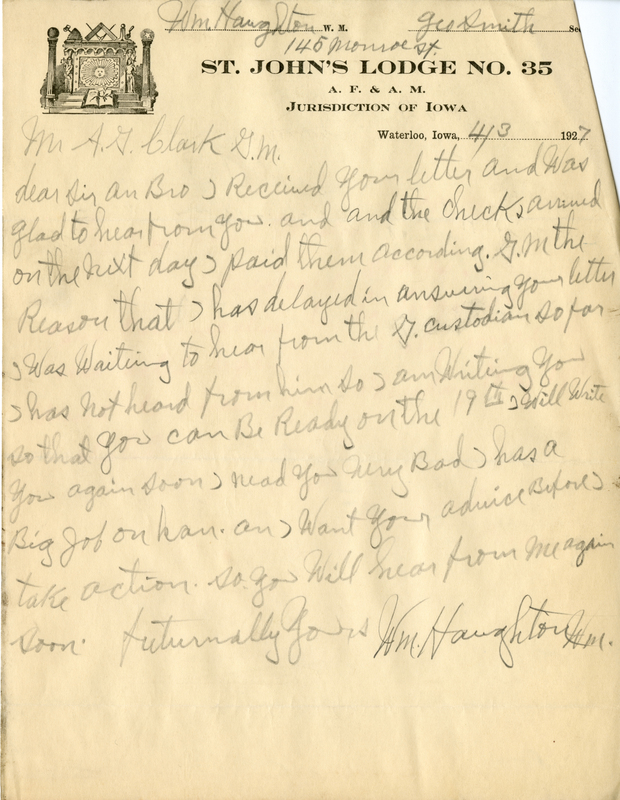 Wm. Haughton W. M. Geo Smith Sec
145 Monroe St
ST. JOHN'S LODGE NO. 35
A. F. & A. M.
JURISDICTION OF IOWA
Waterloo, Iowa, 4/3 1927
Mr A. G. Clark G.M.
dear Sir an Bro I Received Your letter and Was
glad to hear from You. and and the Checks arrived
on the next day I paid them according. G.M the
Reason that I has delayed in answering Your letter
I Was Waiting to hear from the G. custodian so far
I has not heard from him so I am Writing You
so that You can Be Ready on the 19th I Will Write
You again soon I nead You Very Bad I has a
Big Job on han. an I Want Your advice Before I
take action. so. you Will hear from me again
soon. Futurnally Yours Wm. Haughton WM.